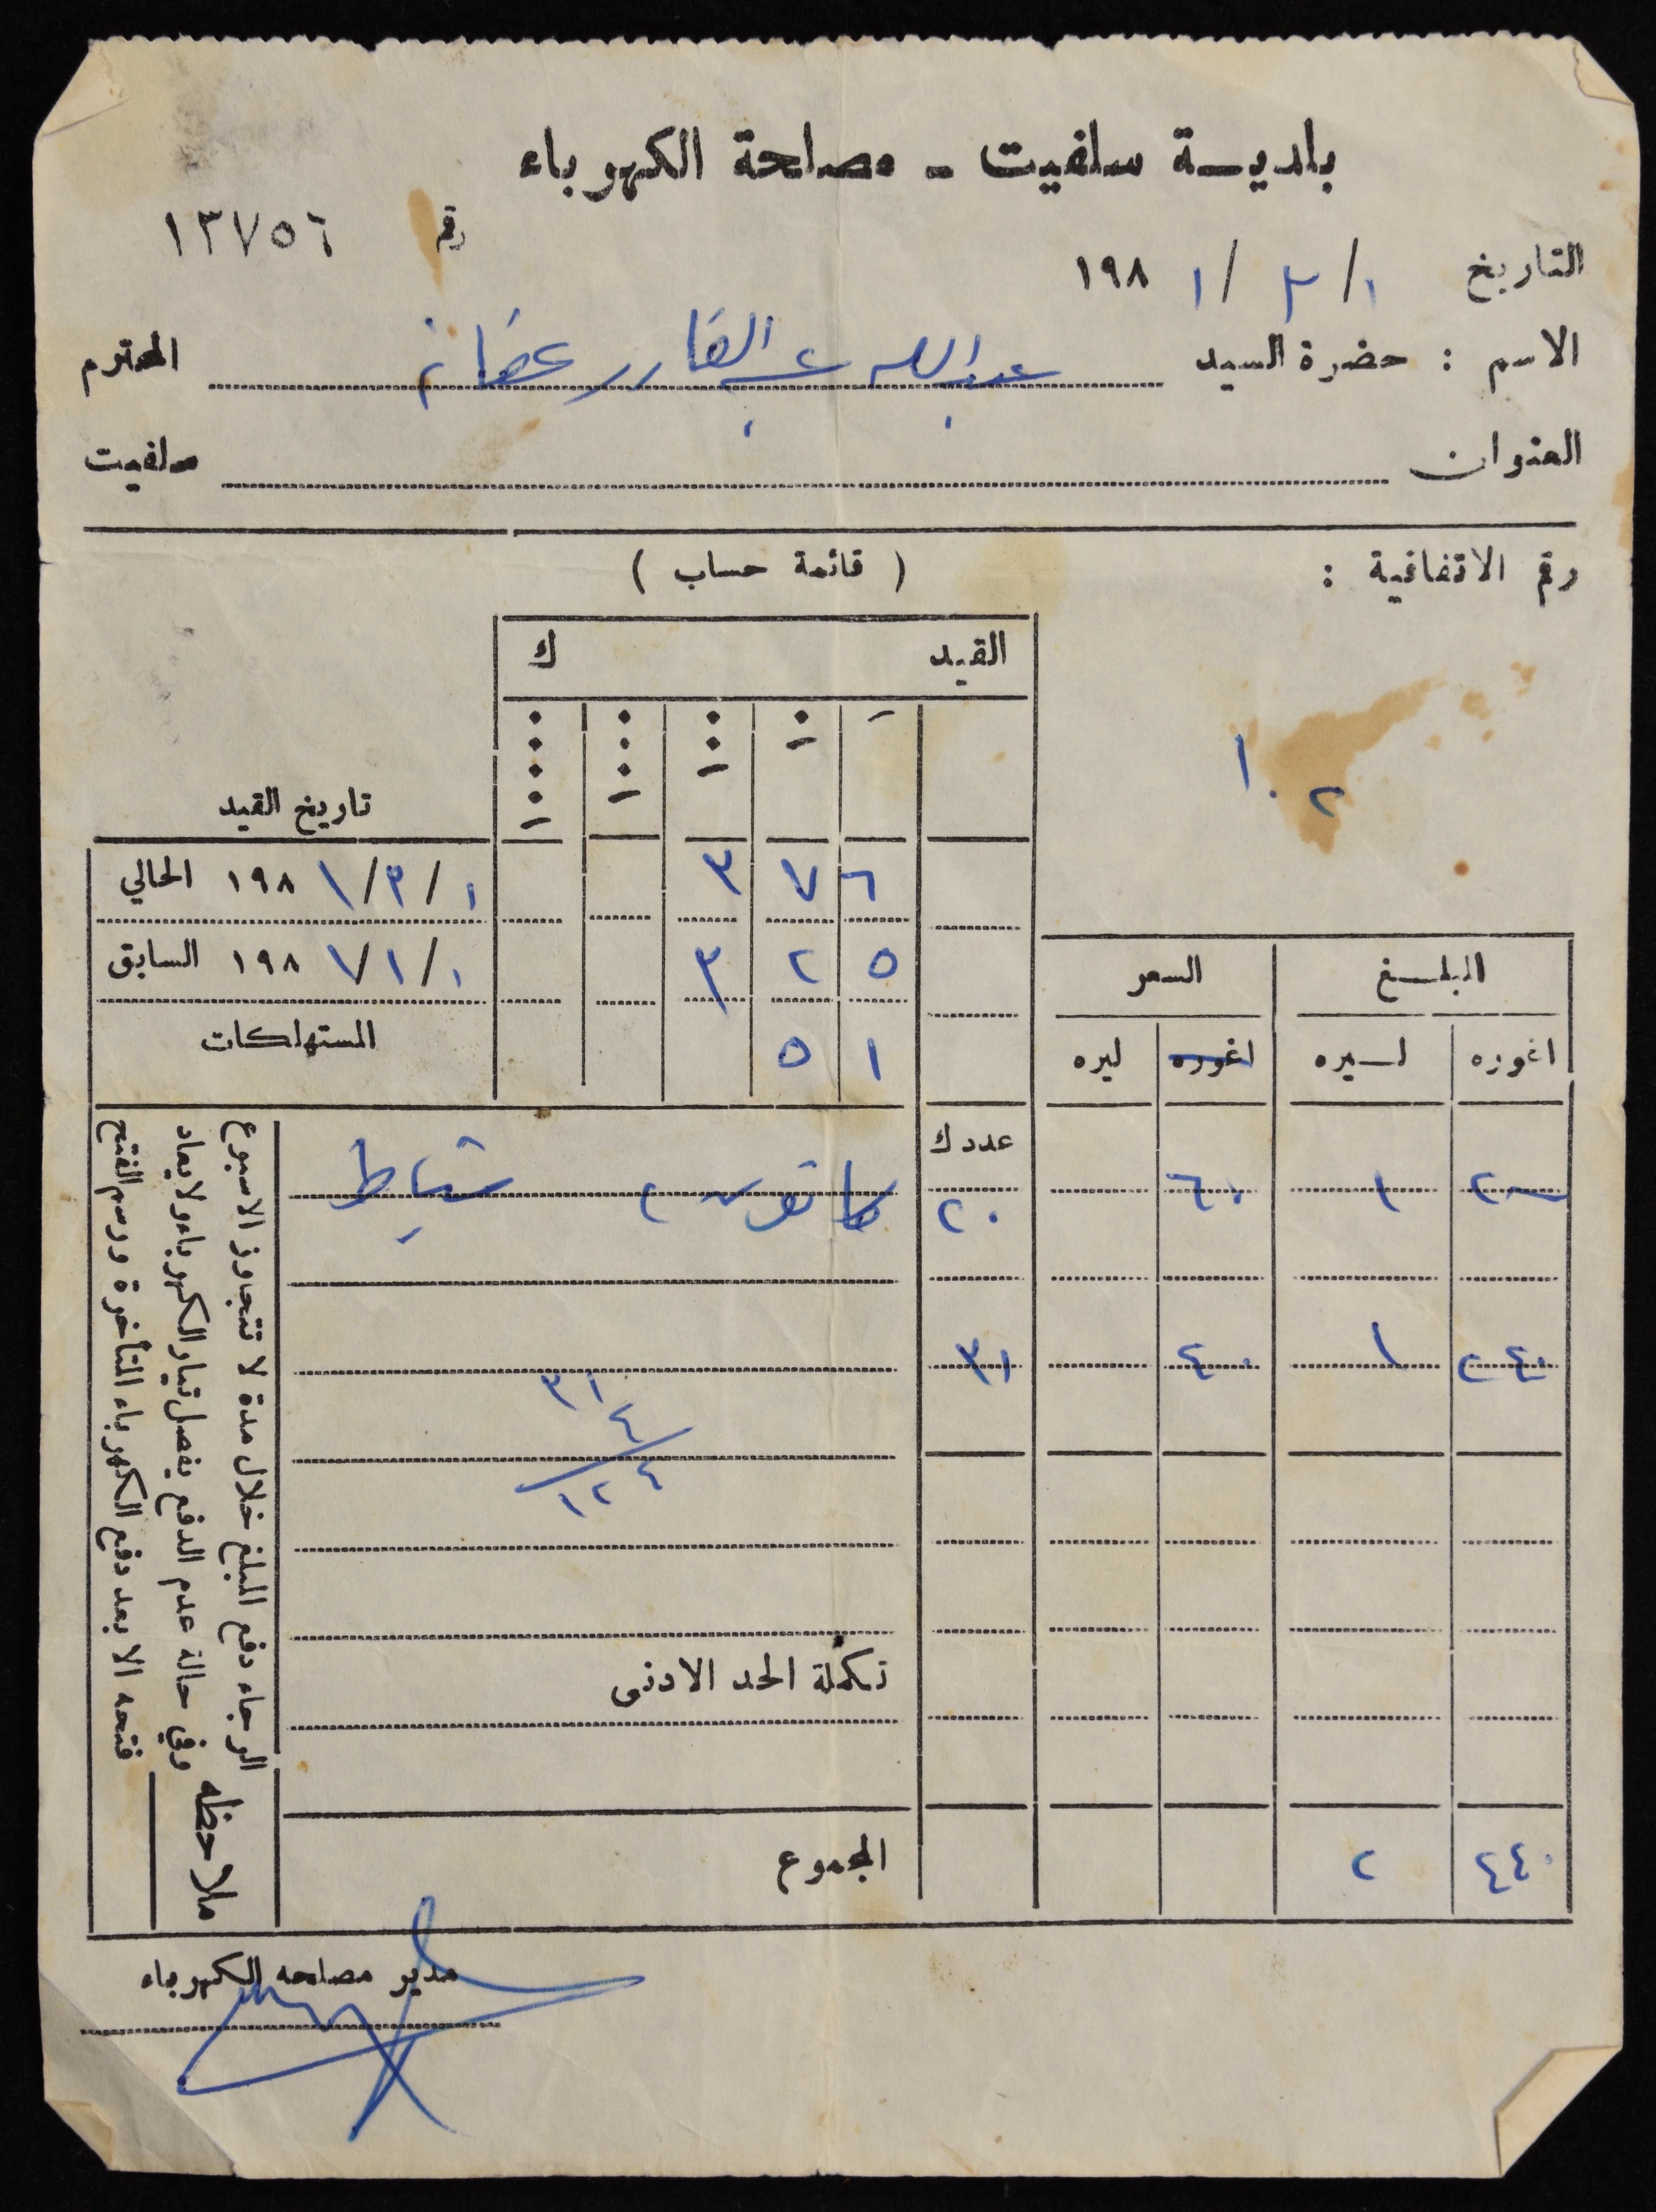 بلديـة سلفيت - مصلحة الكهرباء
رقم ١٣٧٥٦
التاريخ ١ / ٣ / ١٩٨١
الاسم : حضرة السيد عبدالله عبدالقادر عفانه المحترم
العنوان سلفيت
رقم الاتفاقية :
( قائمة حساب )
١٠٢
القيد ك
تاريخ القيد
٣ ٧ ٦ ١ / ٣ / ١٩٨١ الحالي
٣ ٢ ٥ ١ / ١ / ١٩٨١ السابق
٥ ١ المستهلكات
المبلـغ السعر
اغوره لـيره اغوره ليره
عدد ك
٢٠٠ ١ ٦٠ ٢٠ كانون ٢ شباط
٢٤٠ ١ ٤٠ ٣١
٣١
٤
١٢٤
تكملة الحد الادنى
المجموع
٤٤٠ ٢
ملاحظه
الرجاء دفع المبلغ خلال مدة لا تتجاوز الاسبوع
وفي حالة عدم الدفع يفصل تيار الكهرباء ولا يعاد
فتحه الا بعد دفع الكهرباء المتأخرة ورسم الفتح
مدير مصلحه الكهرباء